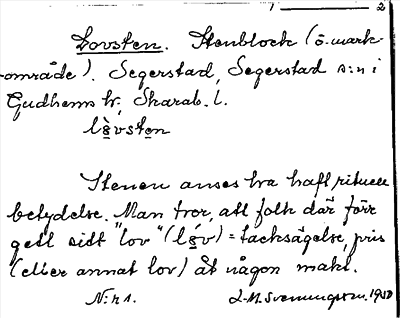 1 — 2
Lovsten. Stenblock (ö. mark-
område). Segerstad, Segerstad s:n i
Gudhems hr, Skarab. l.
Stenen anses ha haft rituell
betydelse. Man tror, att folk där förr
gett sitt "lov" = tacksägelse, pris
(eller annat lov) åt någon makt.
N:r 1. L-M. Svenningsson. 1930